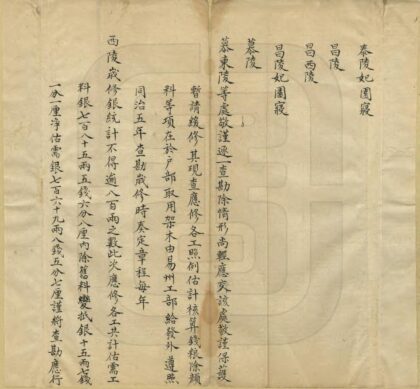 泰陵妃園寢
昌陵
昌西陵
昌陵妃園寢
慕陵
慕東陵等處敬謹逐一查勘除情形尚輕應交該處敬謹保護
暫請緩修其現查應修各工照例估計核算錢糧除顏
料等項在於户部取用架木由易州工部給發外遵照
同治五年查勘歲修時奏定章程每年
西陵歲修銀統計不得逾八百兩之數此次應修各工共計估需工
料銀七百八十五兩五錢六分八厘內除舊料變抵銀十五兩七錢
一分一厘淨估需銀七百六十九兩八錢五分七厘謹將查勘應行